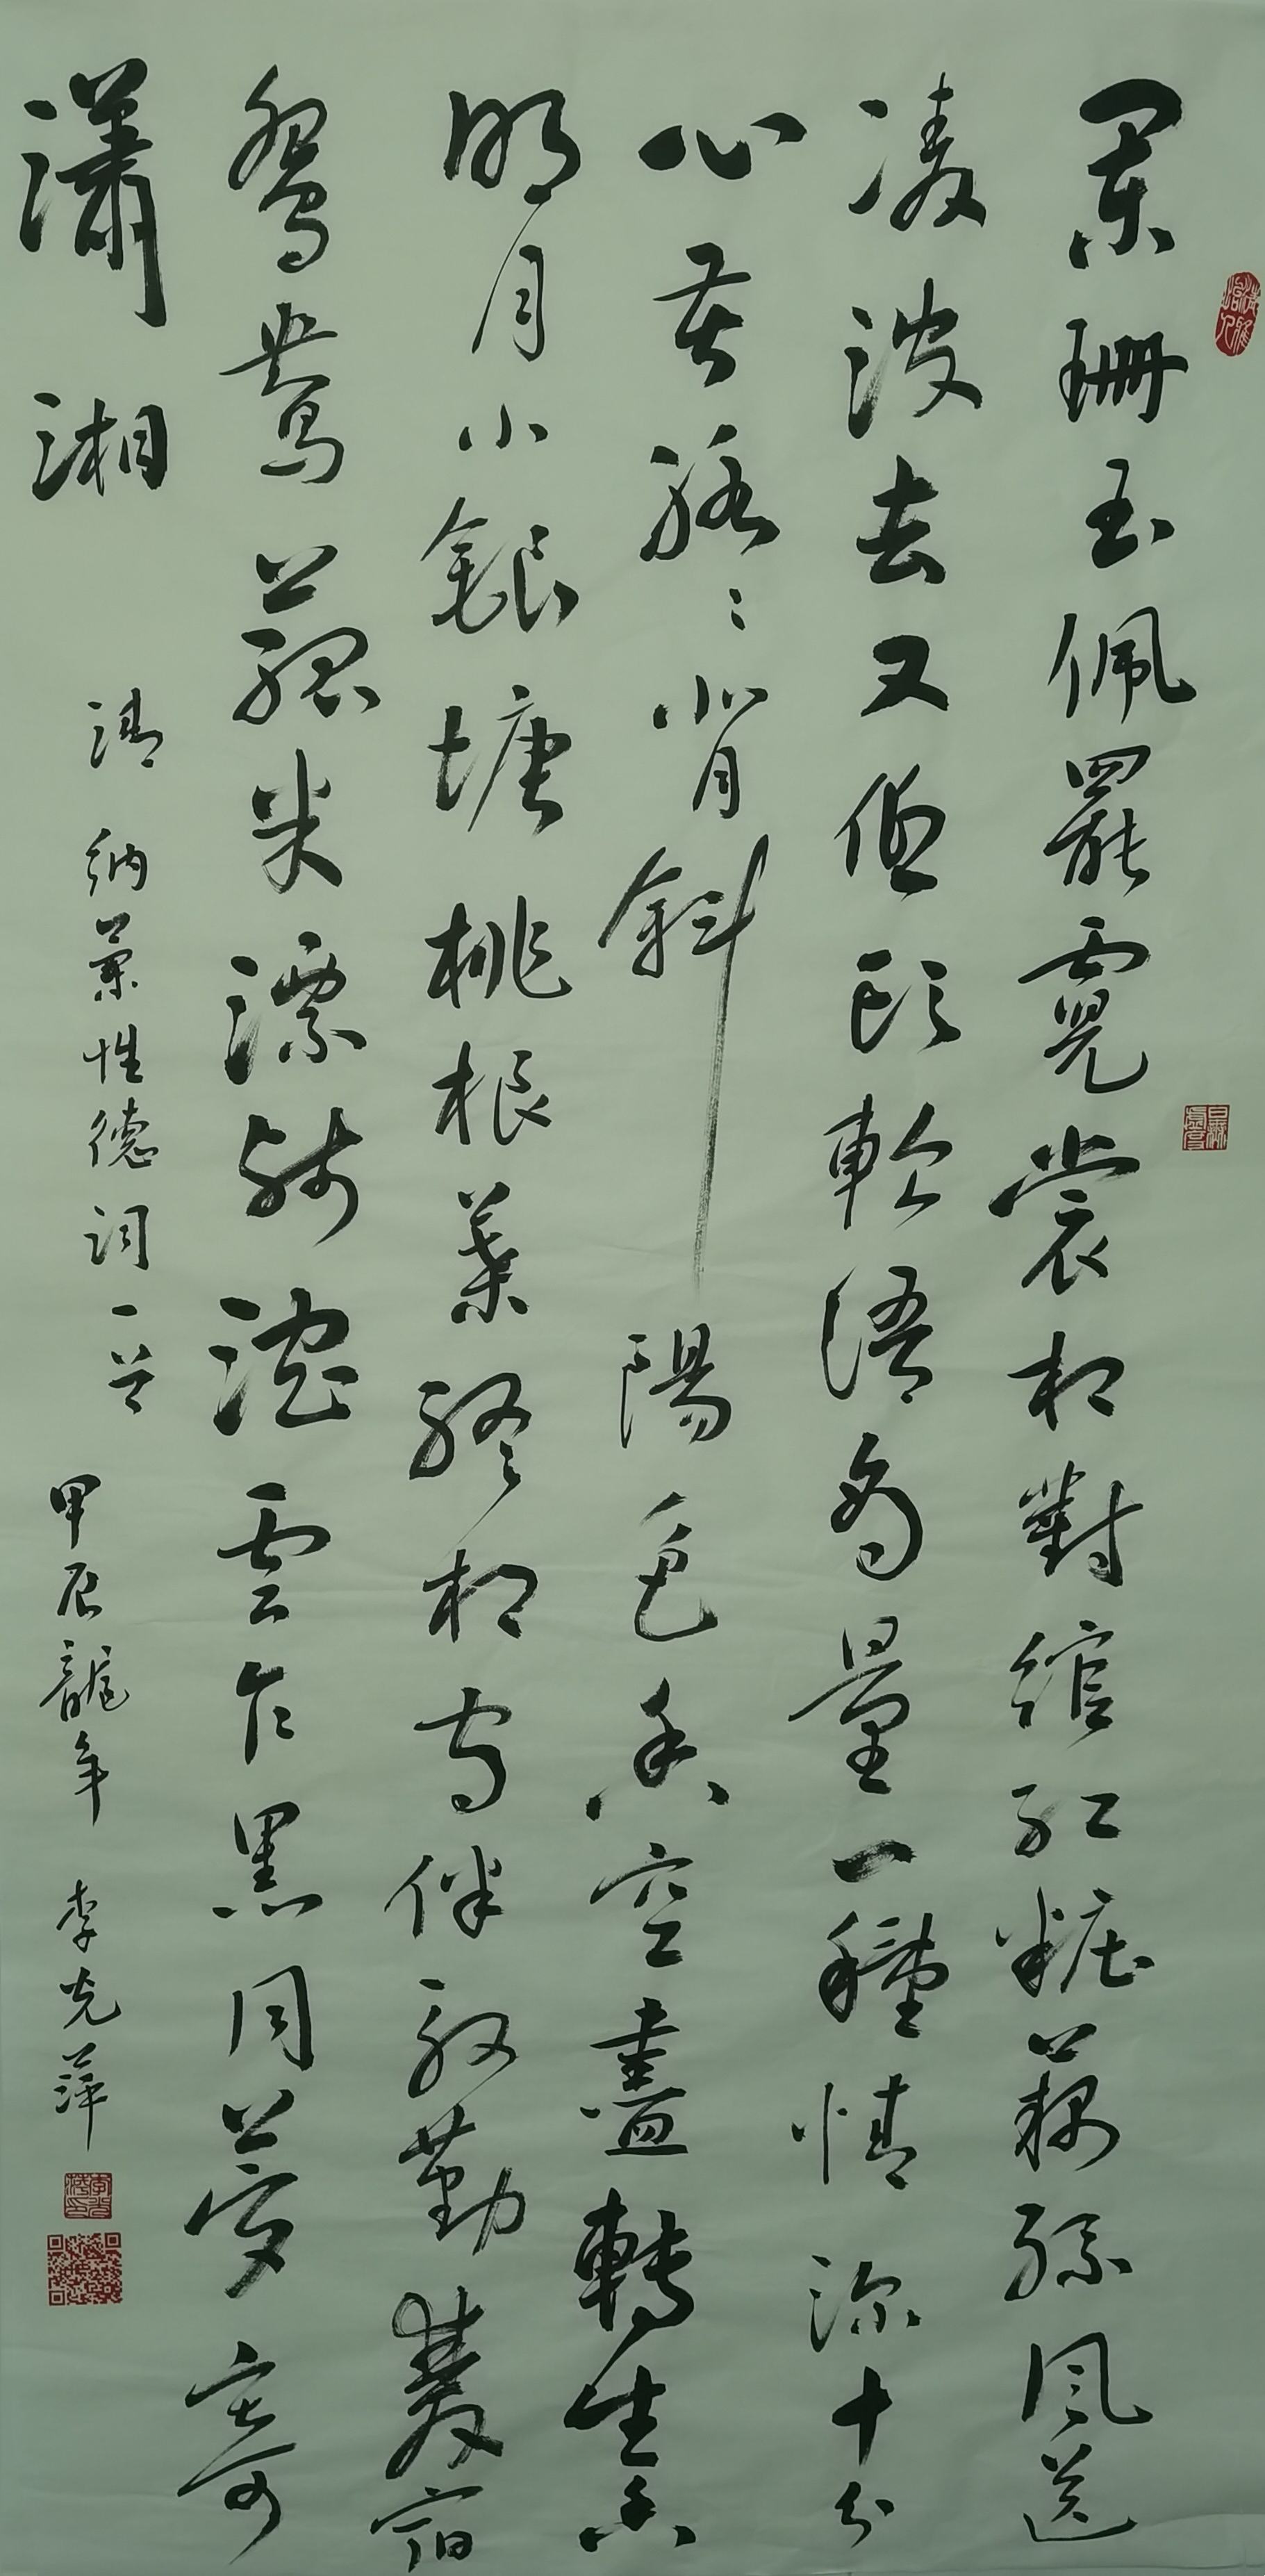 闌珊玉佩罷霓裳相對綰紅粧藕絲風送
凌波去又低頭軟語商量一種情深十分
心苦脉〻背斜陽色香空盡轉生香
明月小銀塘桃根葉終相守伴殷勤雙宿
鴛鴦菰米漂殘沉雲乍黑同夢寄
瀟湘
清 納蘭性德詞一首
甲辰龍年 李光萍